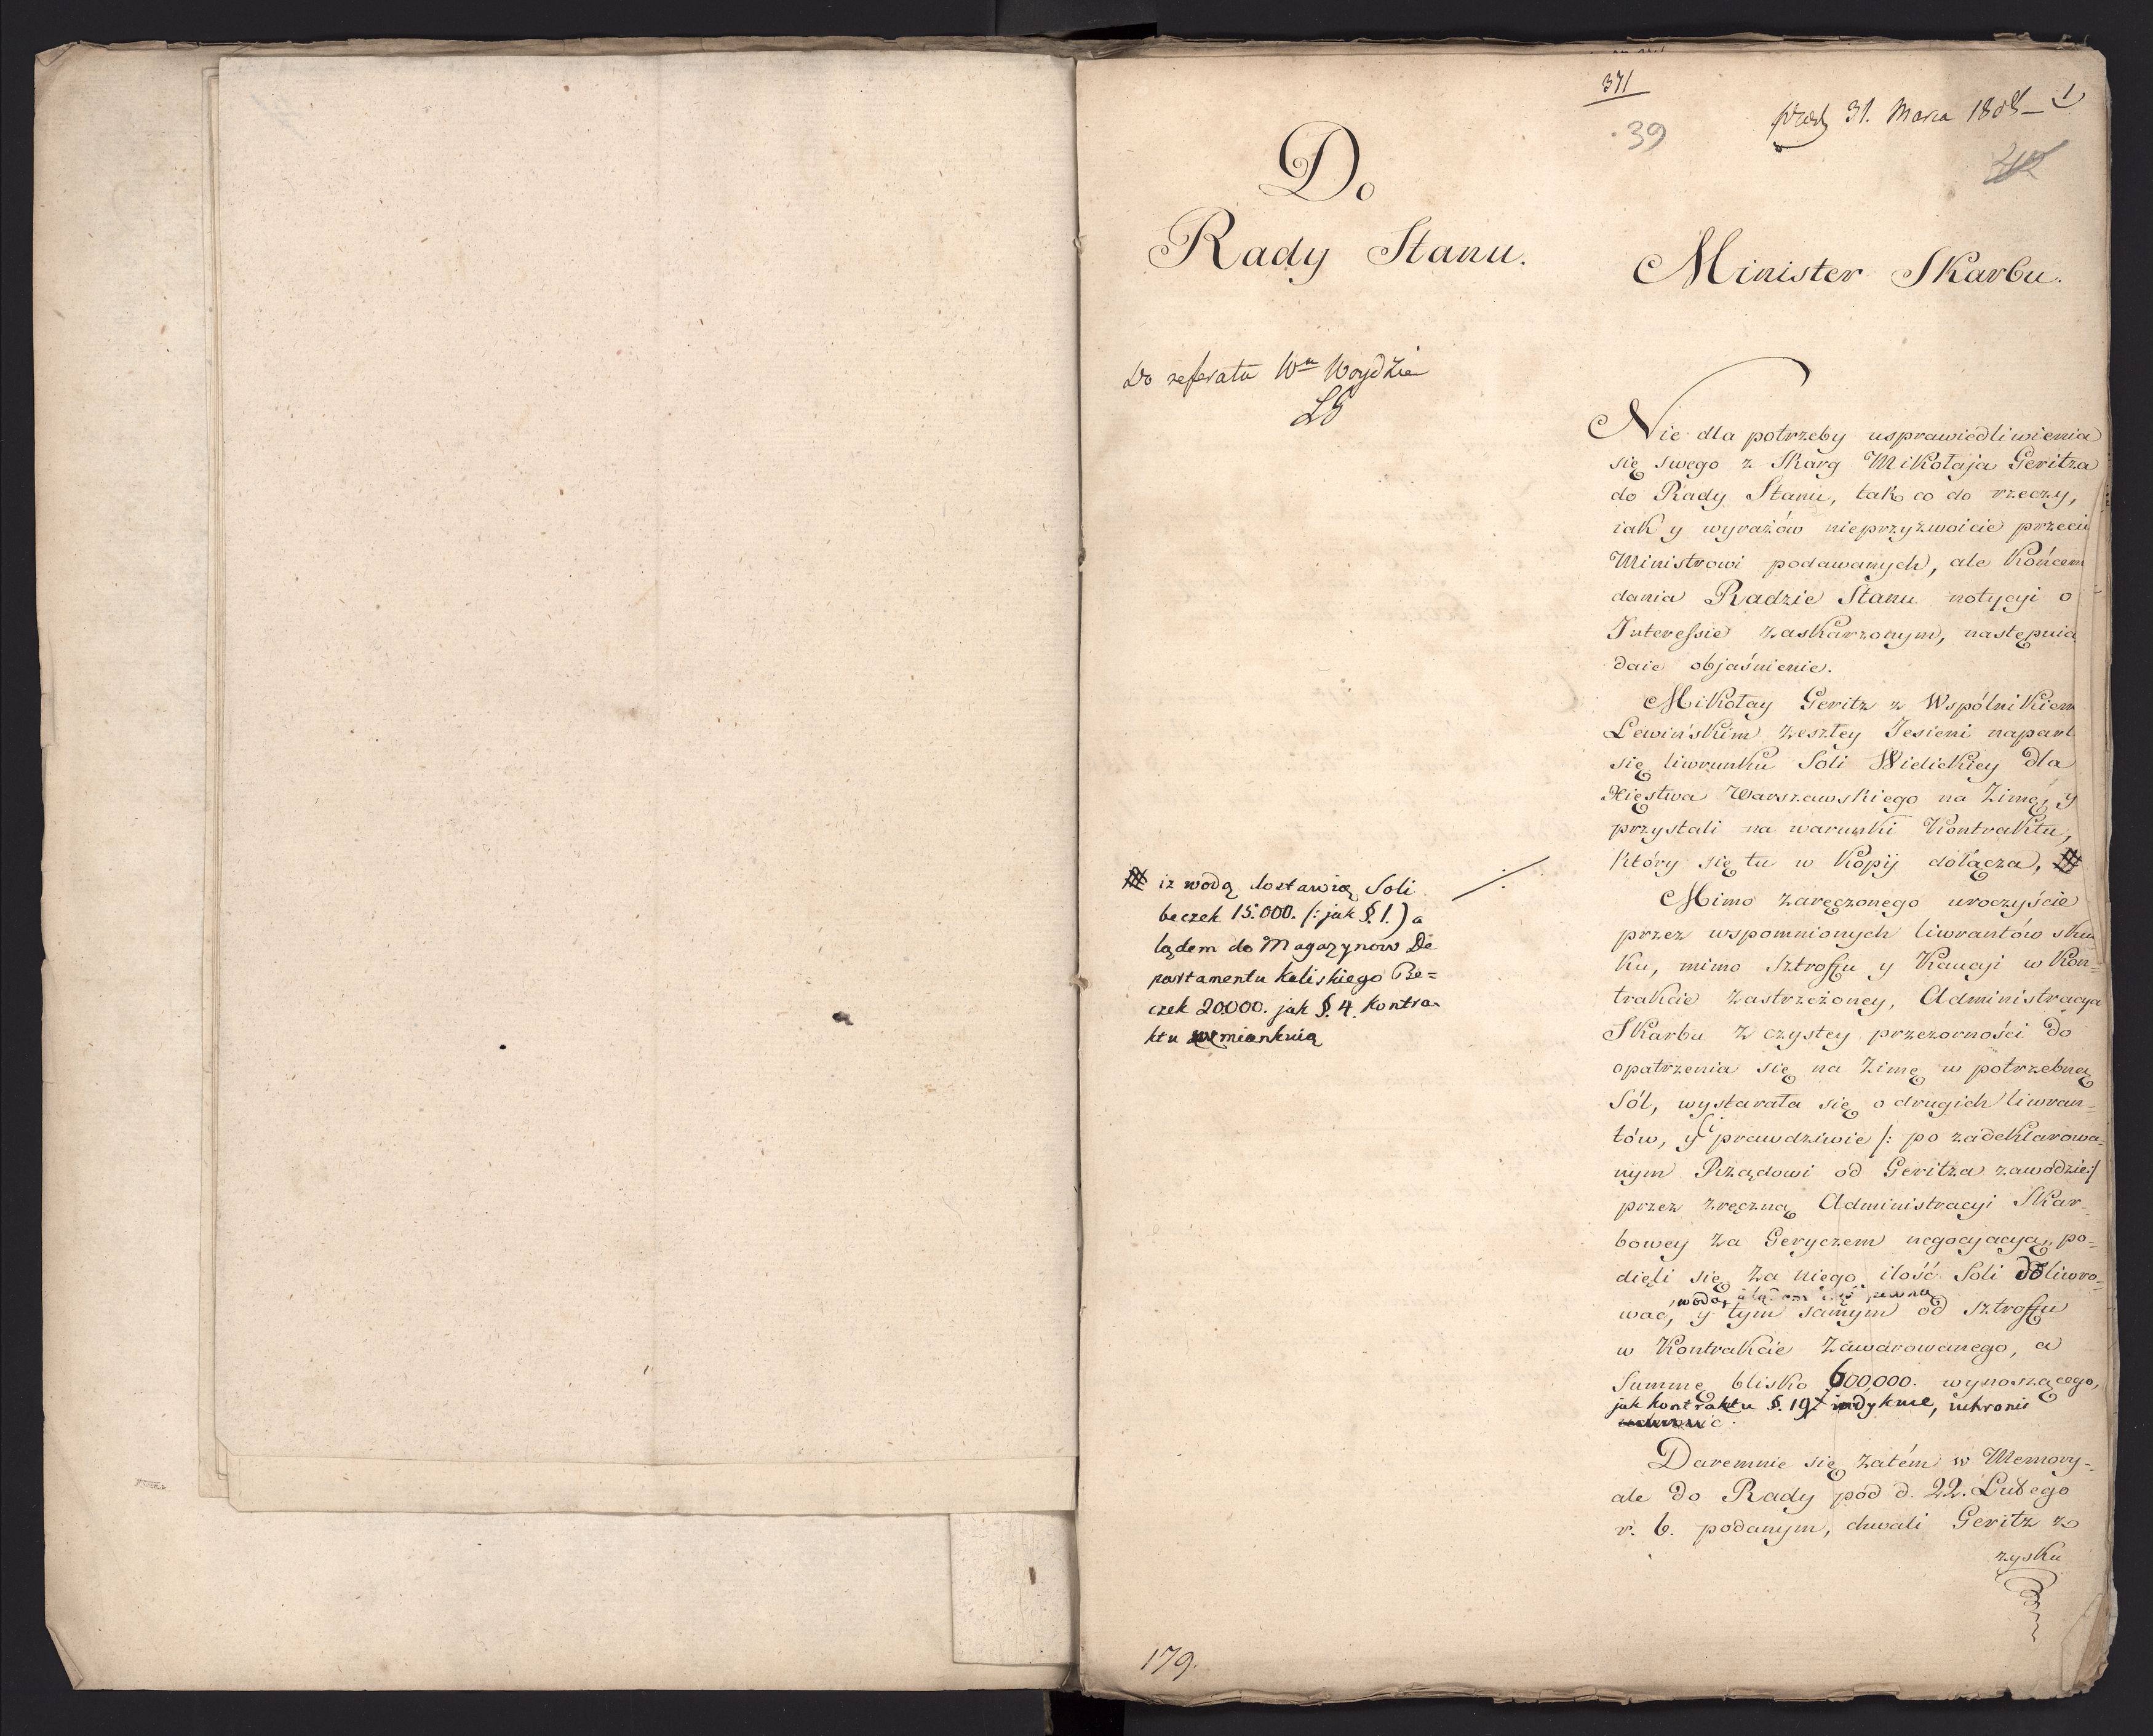 371
39
31. Marca 1808
1
42
Do
Rady Stanu.
Minister Skarbu.
Do referatu Wu Woydzie
LG
Nie dla potrzeby usprawiedliwienia
się swego z Skarg Mikołaja Geritza
do Rady Stanu, tak co do rzeczy,
iak y wyrazów nieprzyzwoicie przeciw
Ministrowi podawanych, ale końcem
dania Radzie Stanu notycyi o
Interessie zaskarzonym, następnia
daie objaśnienie.
Mikołay Geritz z Wspólnikiem
Lewińskim zeszłey Jesieni naparł
się liwrunku Soli Wielickiey dla
Xięstwa Warszawskiego na Zimę, y
przystali na warunki Kontraktu,
który się tu w Kopij dołącza,
iz wodą dostawią Soli
beczek 15.000. (: jak §. 1.) a
lądem do Magazynow De
partamentu Kaliskiego Be=
czek 20000. jak §. 4. Kontra-
ktu wmiankuią
Mimo zaręczonego uroczyście
przez wspomnionych liwrantów skut
ku, mimo Sztroffu y Kaucyi w Kon-
trakcie zastrzeżoney, Administracya
Skarbu z czystey przezorności do
opatrzenia się na Zimę w potrzebną
Sól, wystarała się o drugich liwran-
tów, y ci prawdziwie /: po zadeklarowa-
nym Rządowi od Geritza zawodzie :/
przez zręczną Administracyi Skar-
bowey za Geryczem negocyacyą, po-
dięli się za niego ilość Soli doliwro-
wodą
wać, y tym samym od sztroffu
w Kontrakcie zawarowanego, a
Summę blisko 600,000. wynoszącego,
jak kontraktu §. 19 indykuie, uchronić
Daremnie się zatém w Memory-
ale do Rady pod d. 22. Lutego
r. b. podanym, chwali Geritz z
zysku
179.